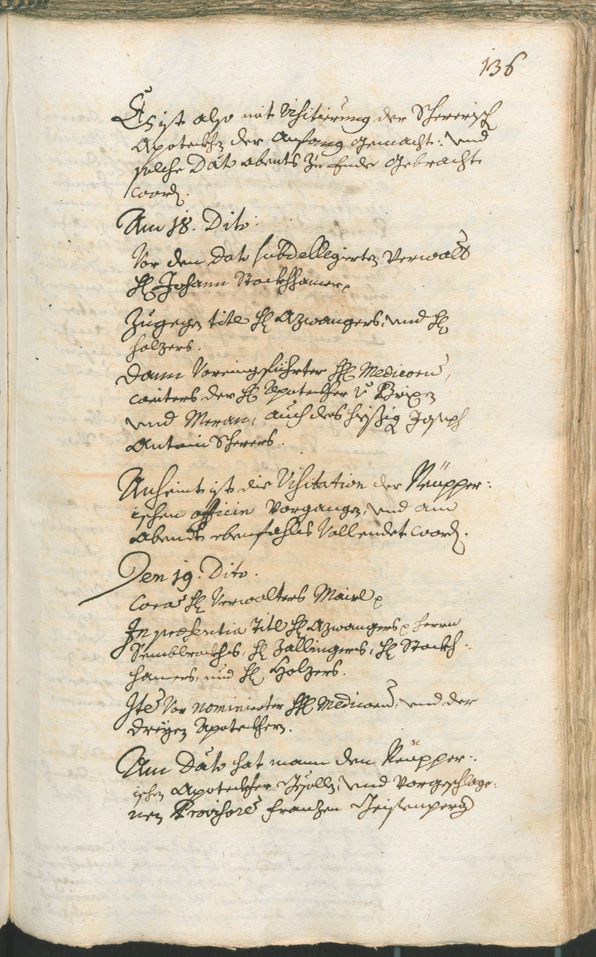 136
Es ist also mit Visitierung der Schererisch
Apotekhen der Anfang gemacht: und
solche Dato abents zu Ende gebracht
word.
Am 18. Dito.
Vor dem dato subdellegierten Verwalt
H. Johann Stockhamer
Zugegen titl H. Azwangers, und H.
Holzers.
Dann Voreingefüehrter HH. Medicorum,
weiters der H. Apotekher v. Brixen
und Meran, auch des hießig Joseph
Antoni Scherers.
Anheunt ist die Visitation der
ischen officin vorgangen, und am
Abents ebenfahls vollendet word.
Den 19. Dito.
Coram H. Verwalters Mairl
In praesentia Titl H. Azwangers Herrn
H. Zallingers, H. Stockh-
hamers, und H. Holzers.
Item Vor nominierter HH. Medicorum, und der
dreyen Apotekhern.
Am Dato hat mann den
ischen Apotekher Gsölln, und Vorgeschlage-
nen Provisorem Franzen